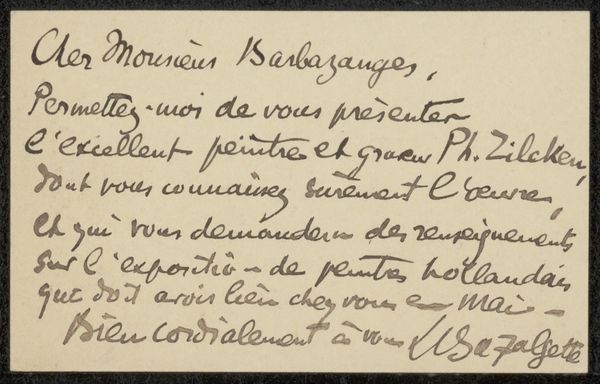 Cher Monsieur Barbazanges,
Permettez-moi de vous présenter
l'excellent peintre et graveur Ph. Zilcken,
dont vous connaissez sûrement l'œuvre,
et qui vous demandera des renseignements
sur l'exposition de peintres hollandais
qui doit avoir lieu chez vous en Mai -
Bien cordialement à vous LBazalgette